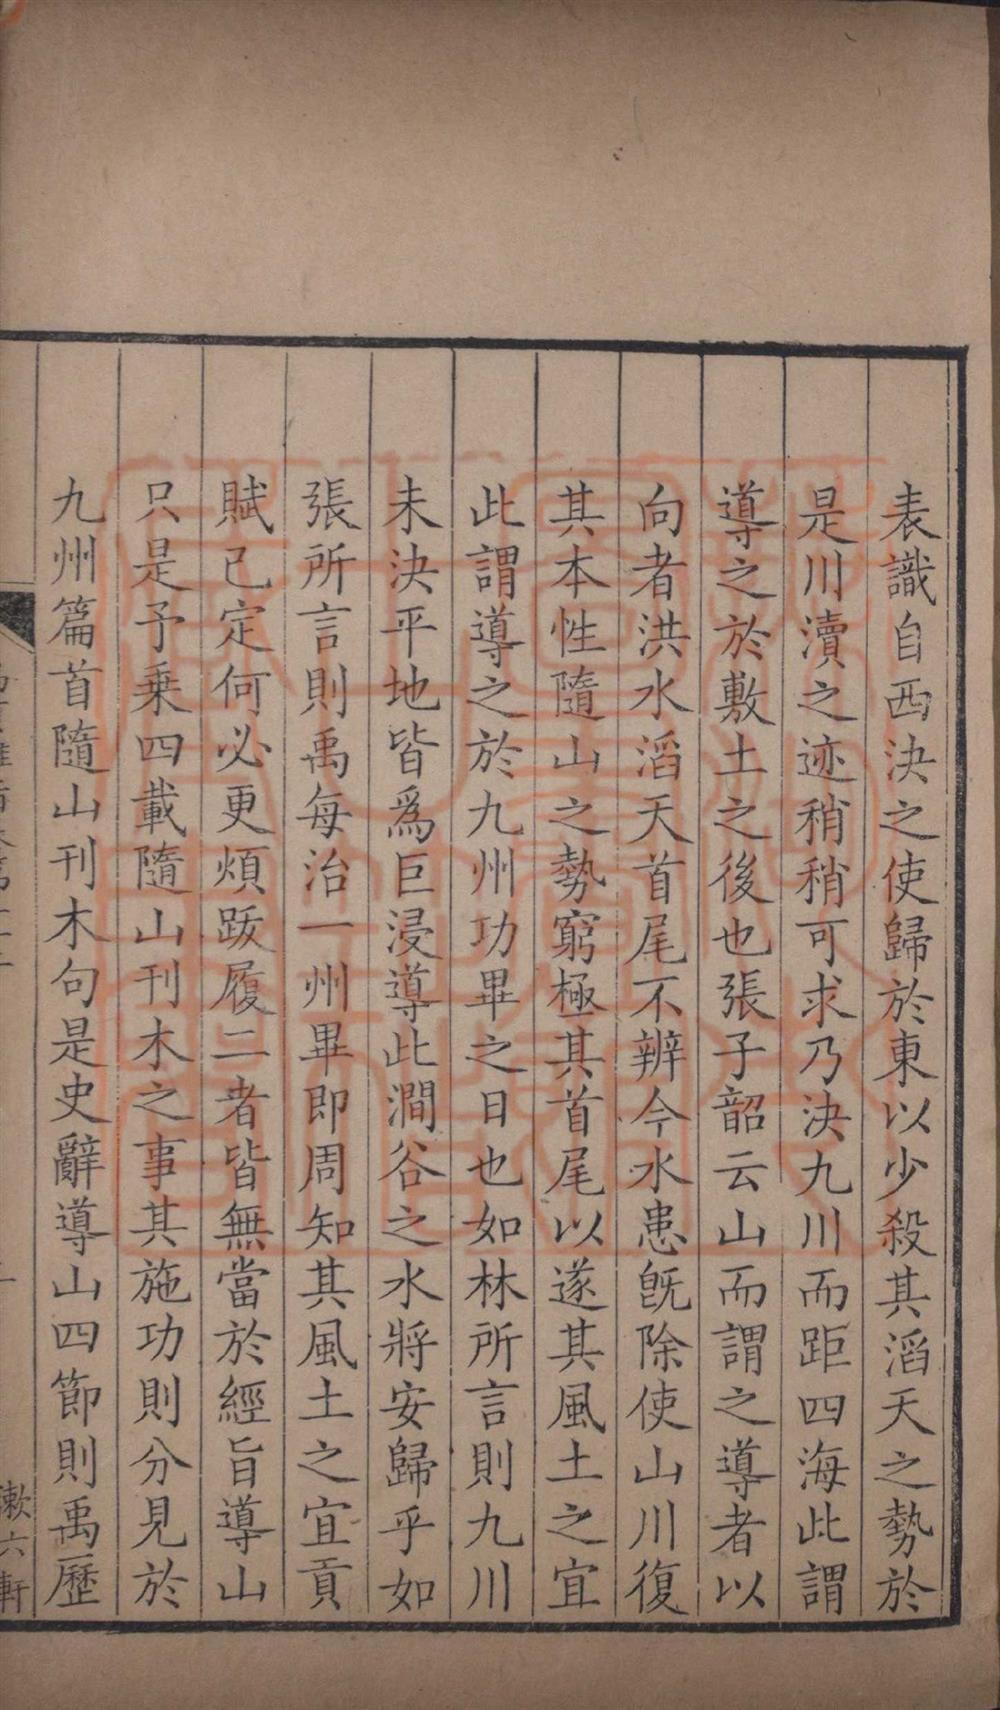 表識自西決之使歸於東以少殺其滔天之勢於
是川瀆之迹稍稍可求乃決九川而距四海此謂
導之於敷土之後也張子韶云山而謂之導者以
向者洪水滔天首尾不辨今水患旣除使山川復
其本性隨山之勢窮極其首尾以遂其風土之宜
此謂導之於九州功畢之日也如林所言則九川
未決平地皆爲巨浸導此澗谷之水將安歸乎如
張所言則禹每治一州畢即周知其風土之宜貢
賦已定何必更煩跋履二者皆無當於經旨導山
只是予乘四載隨山刊木之事其施功則分見於
九州篇首隨山刊木句是史辭導山四節則禹歷
漱六軒